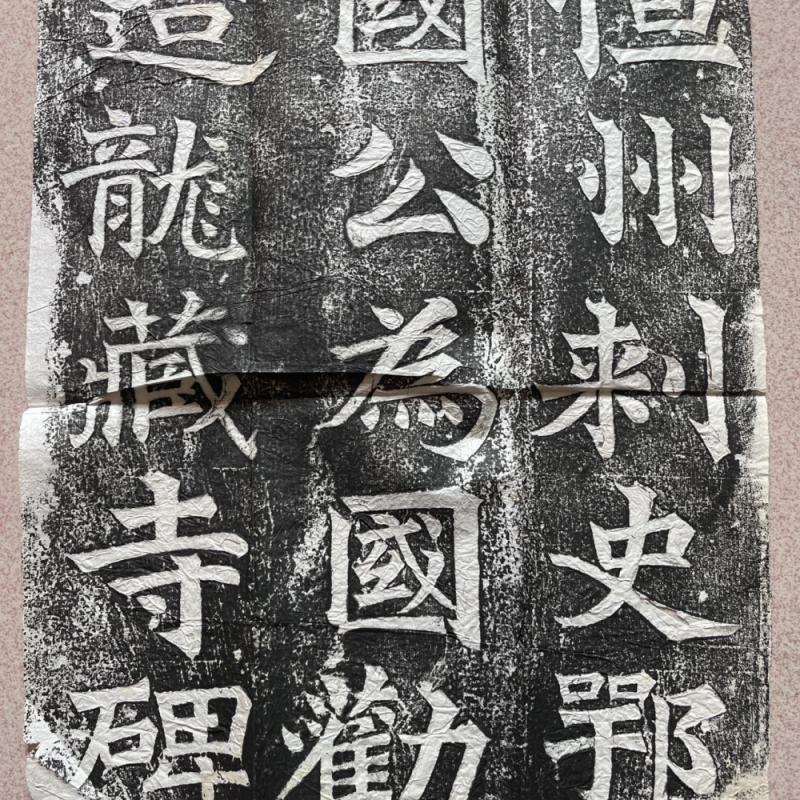 恒州刺史鄂
國公為國勸
造龍藏寺碑